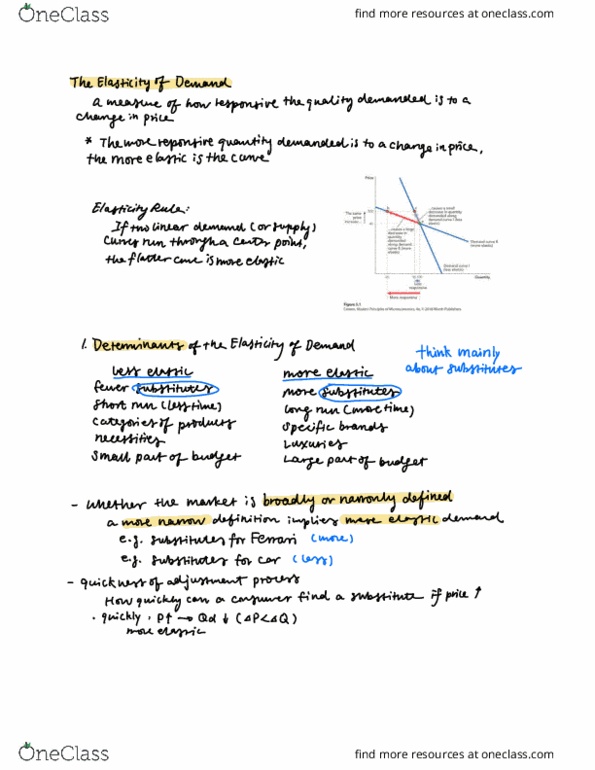 OneClass
find more resources at oneclass.com
The Elasticity of Demand
A measure of how responsive the quality demanded is to a
change in price
* The more reponsive quantity demanded is to a change in price,
the more elastic is the curve
Elasticity Rule:
If two linear demand (or supply)
curves run through a center point,
the flatter curve is more elastic
Price
The same
price
increase...
...causes a small
decrease in quantity
demanded along
demand curve I (less
elastic)
...causes a large
decrease in
quantity
demanded
along demand
curve E (more
elastic)
Demand curve E
(more elastic)
Demand curve I
(less elastic)
Quantity
Less
responsive
More responsive
Figure 5.1
Cowen, Modern Principles of Microeconomics, 4e, © 2018 Worth Publishers
1. Determinants of the Elasticity of Demand
think mainly
about substitutes
less elastic
fewer substitutes
short run (less time)
categories of products
necessities
small part of budget
more elastic
more substitutes
long run (more time)
specific brands
Luxuries
Large part of budget
- whether the market is broadly or narrowly defined
a more narrow definition implies more elastic demand
e.g. substitutes for Ferrari (more)
e.g. substitutes for car (less)
- quickness of adjustment process
How quickly can a consumer find a substitute if price ↑
• quickly, P↑ → Qd ↓ (ΔP<ΔQ)
more elastic
OneClass
find more resources at oneclass.com